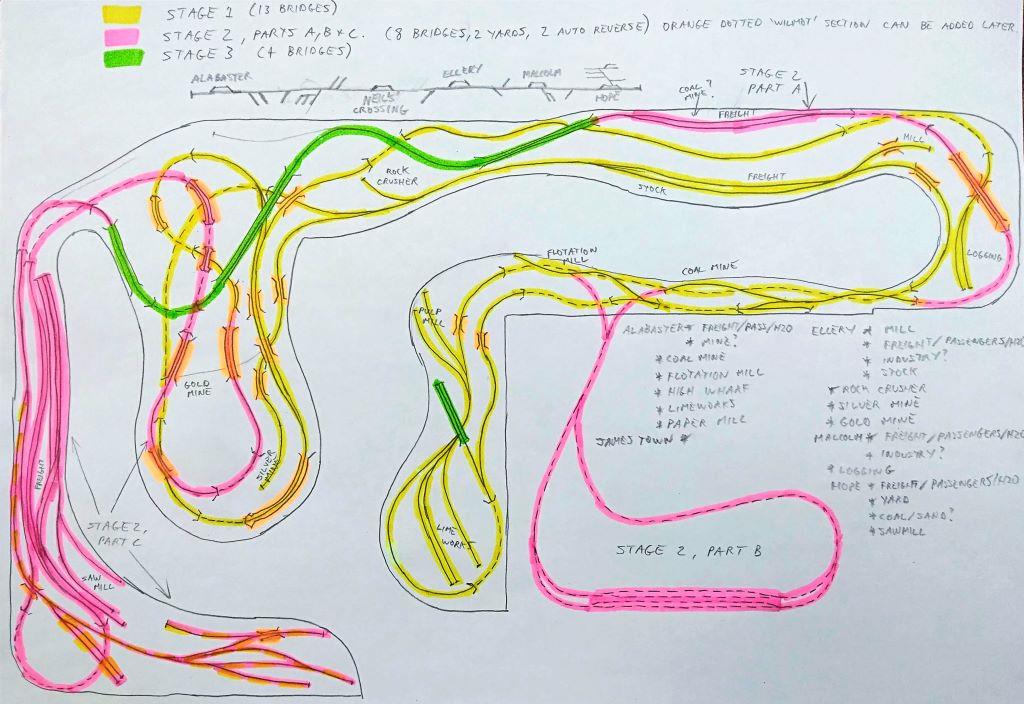 STAGE 1 (13 BRIDGES)
STAGE 2, PARTS A, B & C. (8 BRIDGES, 2 YARDS, 2 AUTO REVERSE) ORANGE DOTTED 'WILMOT' SECTION CAN BE ADDED LATER.
STAGE 3 (4 BRIDGES)
ALABASTER
NEILS' CROSSING
ELLERY
MALCOLM
HOPE
COAL MINE?
STAGE 2
PART A
FREIGHT
MILL
ROCK
CRUSHER
STOCK
FREIGHT
LOGGING
FLOTATION
MILL
COAL MINE
PULP
MILL
GOLD
MINE
SILVER
MINE
LIME
WORKS
FREIGHT
STAGE 2,
PART C
SAW
MILL
STAGE 2, PART B
ALABASTER * FREIGHT/PASS/H2O
* MINE?
* COAL MINE
* FLOTATION MILL
* HIGH WHARF
* LIMEWORKS
* PAPER MILL
JAMESTOWN *
ELLERY * MILL
* FREIGHT/PASSENGERS/H2O
* INDUSTRY?
* STOCK
* ROCK CRUSHER
* SILVER MINE
* GOLD MINE
MALCOLM * FREIGHT/PASSENGERS/H2O
* INDUSTRY?
* LOGGING
HOPE * FREIGHT/PASSENGERS/H2O
* YARD
* COAL/SAND?
* SAWMILL